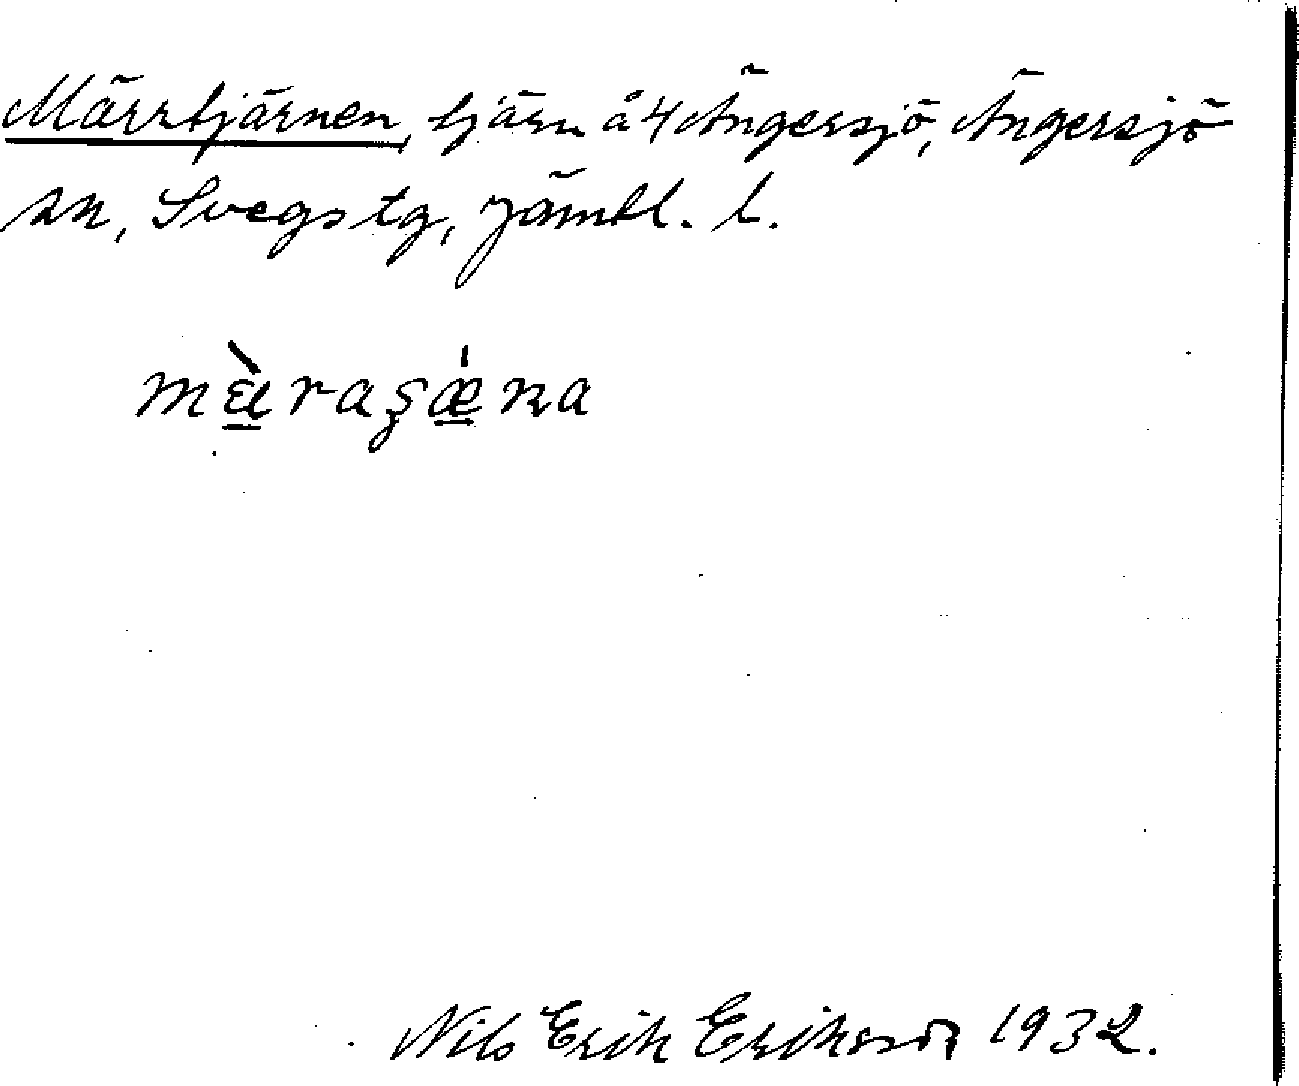 Märrtjärnen, tjärn å 4 Ängersjö, Ängersjö
sn, Svegs tg, Jämtl. l.
mɛ̀raʂǽɳa
Nils Erik Eriksson 1932.